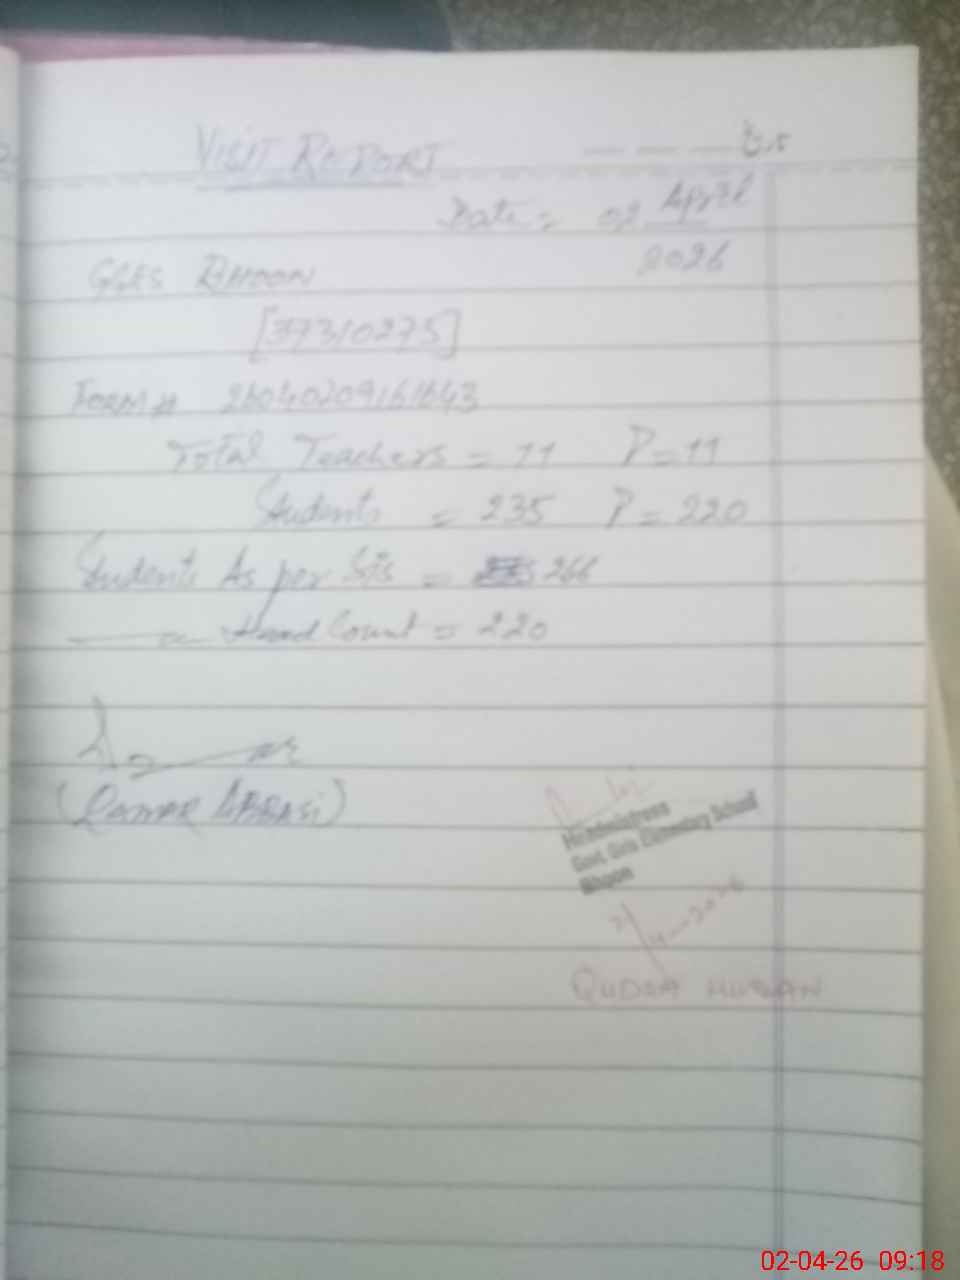 VISIT REPORT
Date = 02 April
2026
GGES BHOON
[37310275]
FORM #
Total Teachers = 11 P = 11
Students = 235 P = 220
Students As per SIS = 266
Head Count = 220
(QAMAR ABBASI)
Headmistress
Govt. Girls Elementary School
Bhoon
2/4-2026
QUDSIA
02-04-26 09:18